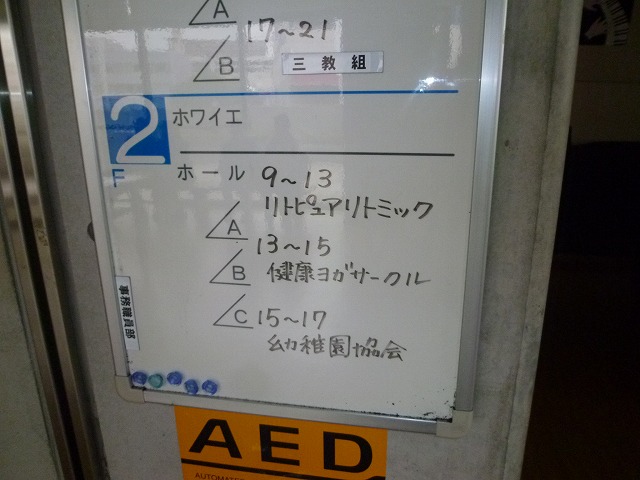 A
17～21
B
三教組
2
F
ホワイエ
ホール 9～13
リトピュアリトミック
A
13～15
B 健康ヨガサークル
C 15～17
幼稚園協会
事務職員部
AED